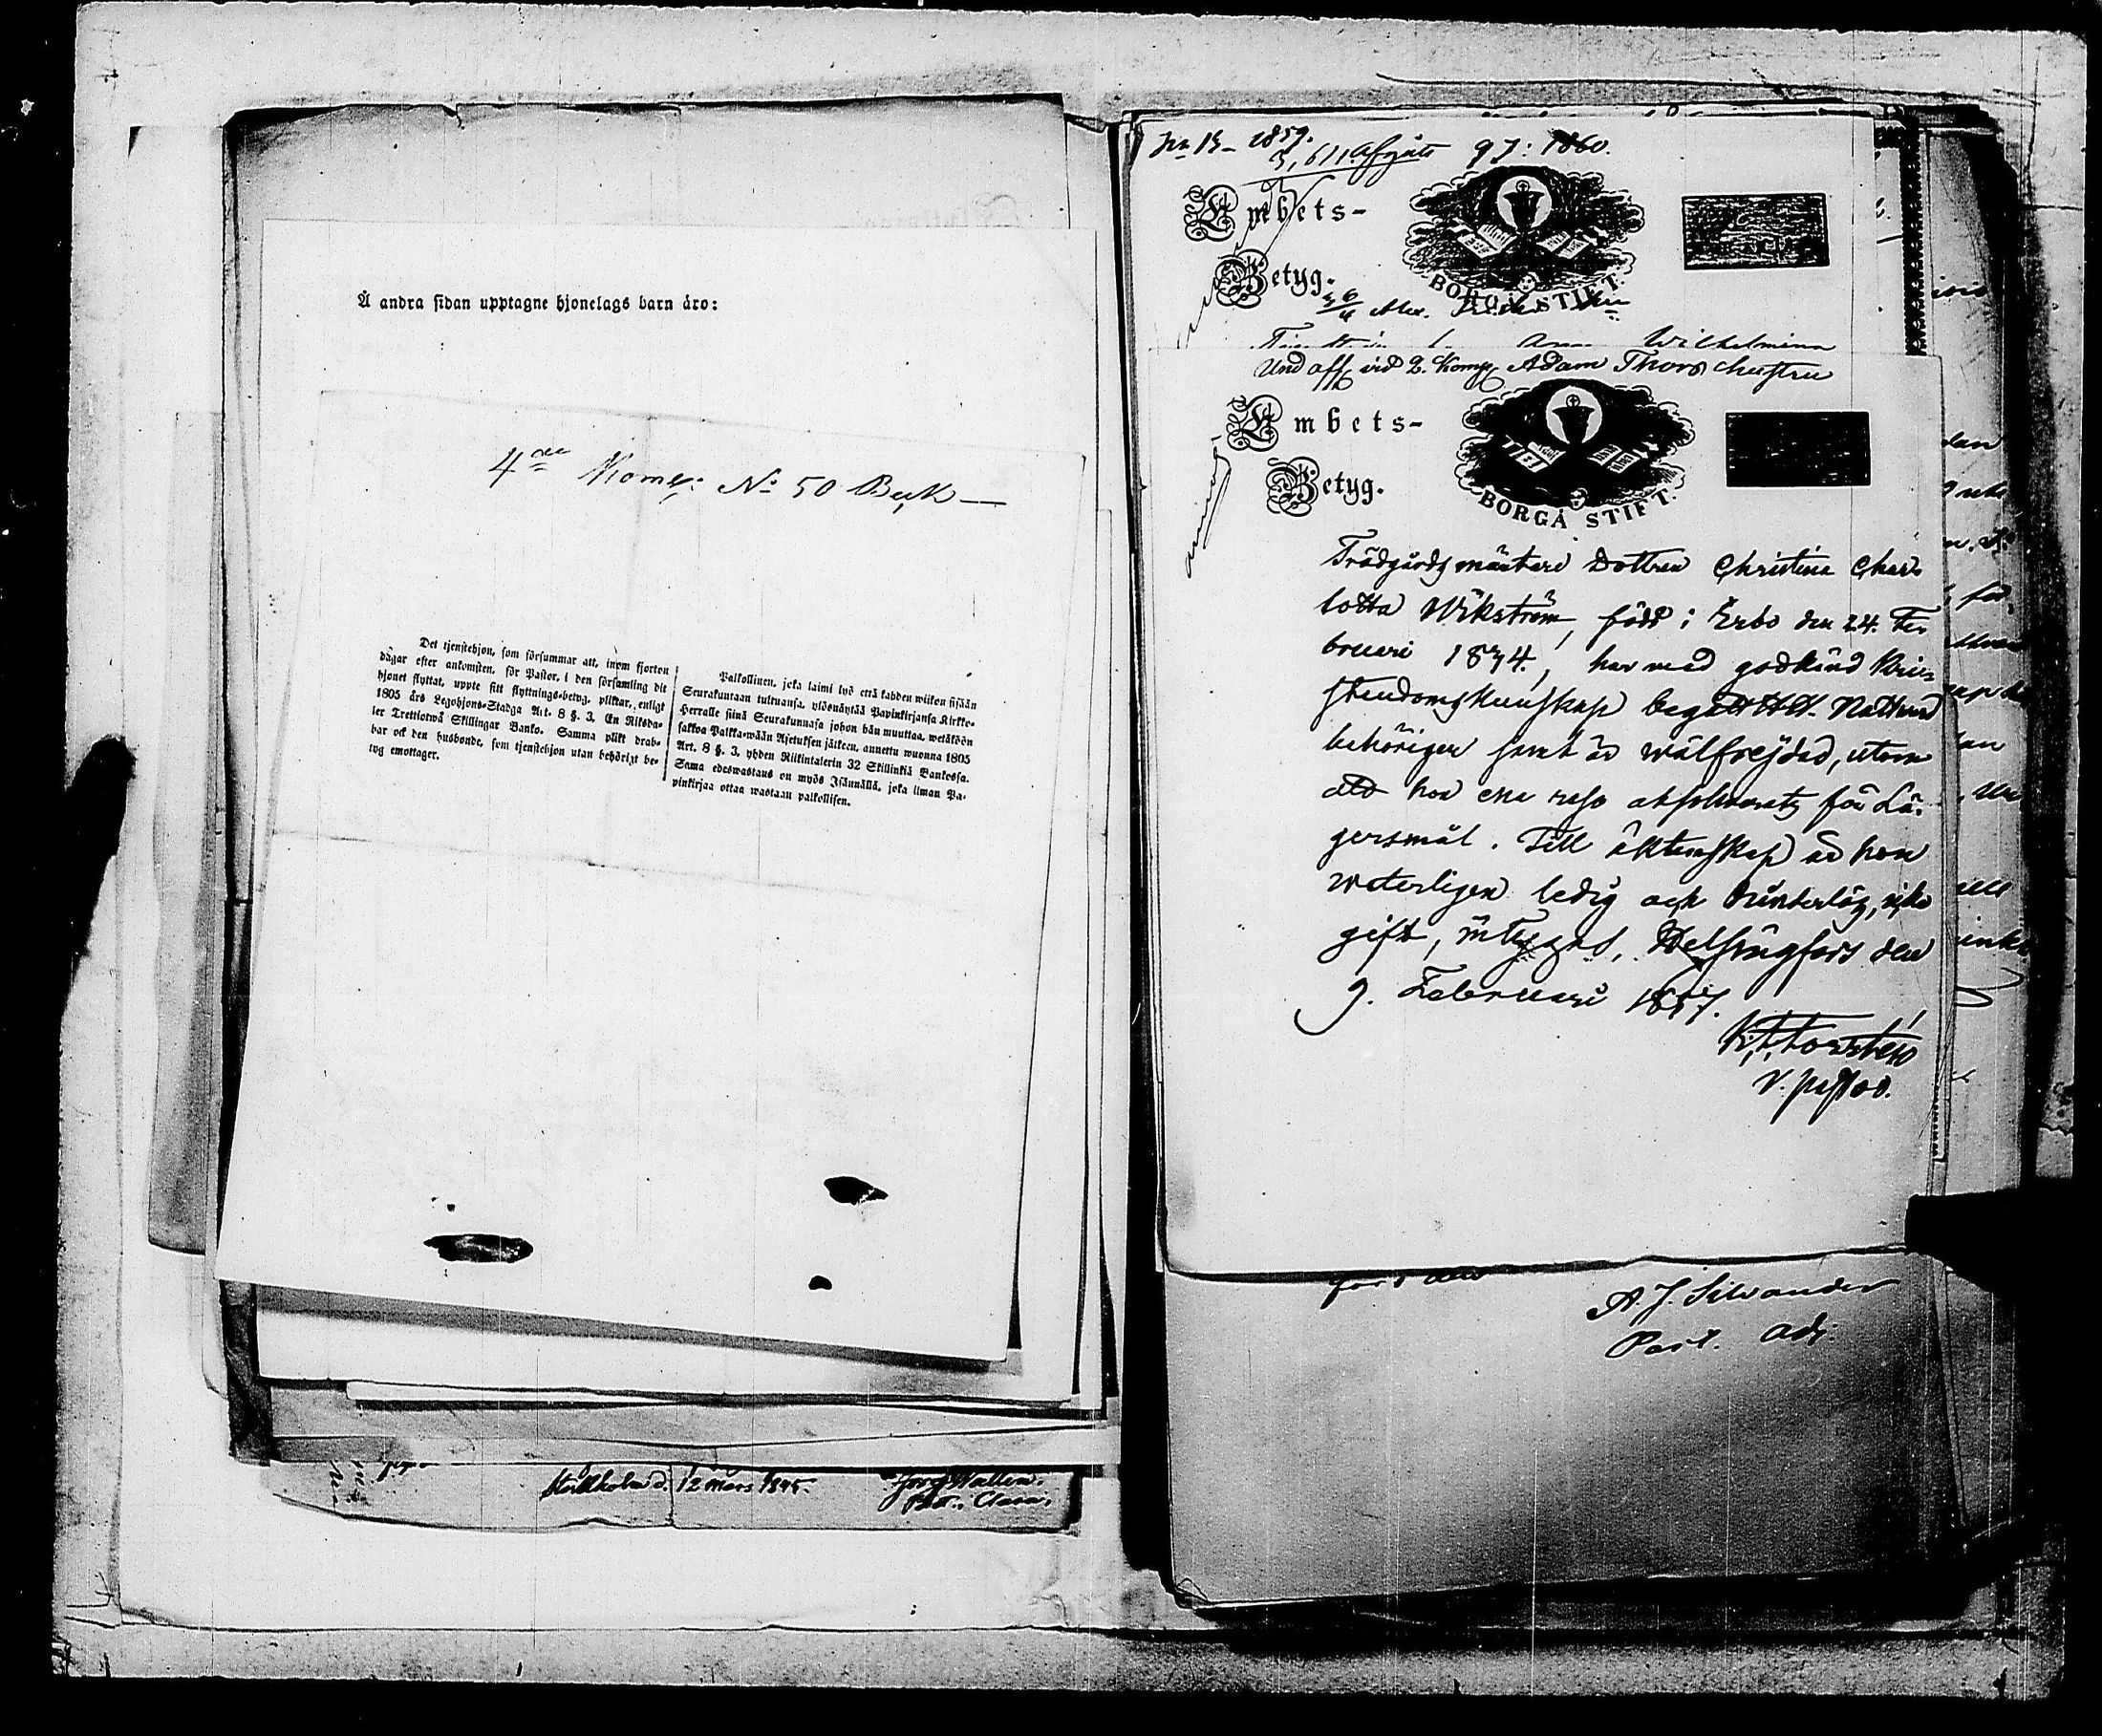 Å andra sidan upptagne hjonelags barn äro:
4de Komp: No 50 Buk
Det tjenstehjon, som försummar att, inom fjorton
dagar efter ankomsten, för Pastor, i den församling dit
hjonet flyttat, uppte sitt flyttnings-betyg, pliktar, enligt
1805 års Legohjons-Stadga Art. 8 §. 3. En Riksda-
ler Trettiotwå Skillingar Banko. Samma plikt drab-
bar ock den husbonde, som tjenstehjon utan behörigt be-
tyg emottager.
Palkollinen, joka laimi lyö että kahden wiikon sisään
Seurakuntaan tultuansa, ylösnäytää Papinkirjansa Kirkko-
Herralle siinä Seurakunnasa johon hän muuttaa, wetäköön
sakkoa Palkka-wään Asetuksen jälkeen, annettu wuonna 1805
Art. 8 §. 3, yhden Riikintalerin 32 Skillinkiä Bankossa.
Sama edeswastaus on myös Isännällä, joka ilman Pa-
pinkirjaa ottaa wastaan palkollisen.
Stockholm d. 12 Mars 1845.
Georg Wallin.
Past. i Clara.
No 15 - 1859.
3,611. Afgått 97: 1860.
Embets-
Betyg.
BORGÅ STIFT.
Wilhelmina
Und off. vid 2. Komp. Adam Thors hustru
Embets-
Betyg.
BORGÅ STIFT.
Trädgårdsmästare Dottren Christina Char-
lotta Wikström, född i Esbo den 24. Fe-
bruari 1834, har med godkänd Kri-
stendomskunskap begått H.H. Nattvard
behörigen samt är wälfrejdad, utom
att hon ena resa absolverats för Lä-
gersmål. Till äktenskap är hon
weterligen ledig och hinderlös, icke
gift, intygas, Helsingfors den
9. Februari 1857.
K. F. Forstén
V. pastor.
fors den
A. J. Silvander
Past. Adj.